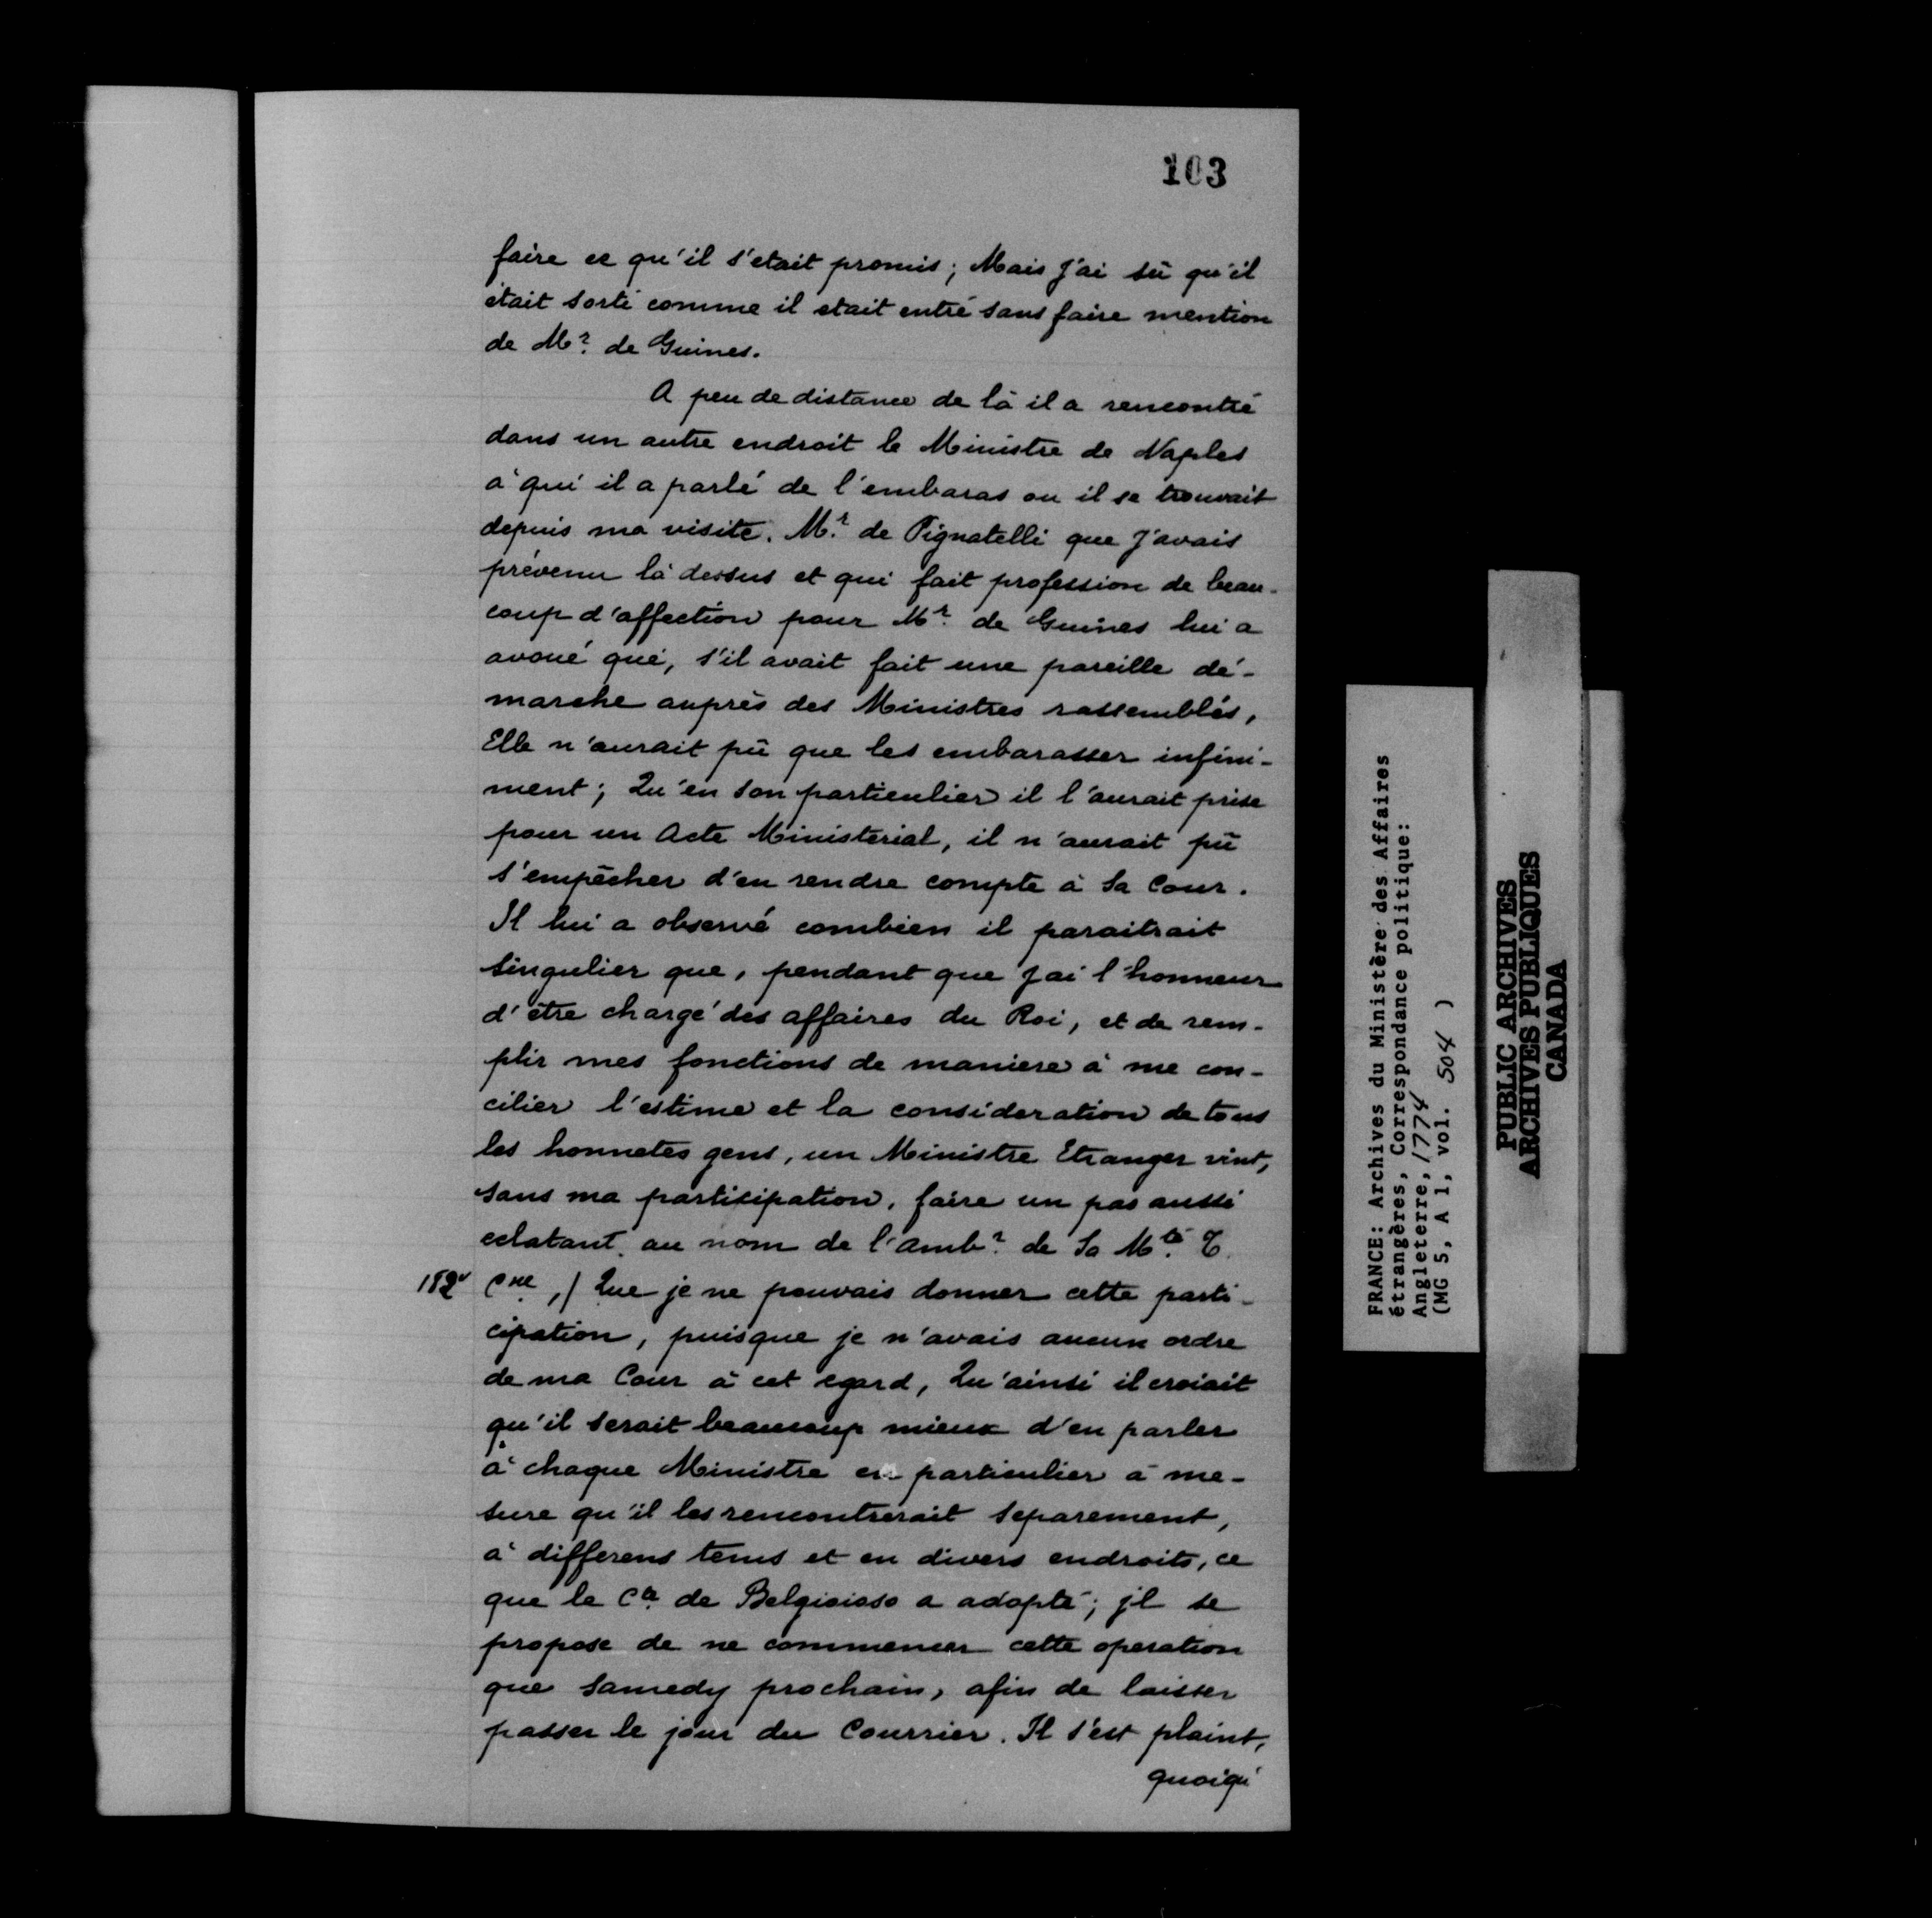 103
faire ce qu'il s'etait promis; Mais j'ai sû qu'il
était sorti comme il etait entré sans faire mention
de Mr. de Guines.
A peu de distance de là il a rencontré
dans un autre endroit le Ministre de Naples
à qui il a parlé de l'embaras ou il se trouvait
depuis ma visite. Mr. de Pignatelli que j'avais
prévenu là dessus et qui fait profession de beau-
coup d'affection pour Mr. de Guines lui a
avoué que, s'il avait fait une pareille dé-
marche auprès des Ministres rassemblés,
Elle n'aurait pû que les embarasser infini-
ment; Qu'en son particulier il l'aurait prise
pour un Acte Ministerial, il n'aurait pû
s'empêcher d'en rendre compte à Sa Cour.
Il lui a observé combien il paraitrait
singulier que, pendant que j'ai l'honneur
d'être chargé des affaires du Roi, et de rem-
plir mes fonctions de maniere à me con-
cilier l'estime et la consideration de tous
les honnetes gens, un Ministre Etranger vint,
sans ma participation, faire un pas aussi
eclatant au nom de l'Ambr. de Sa Mté. T.
182v Cne, / Que je ne pouvais donner cette parti-
cipation, puisque je n'avais aucun ordre
de ma Cour à cet egard, Qu'ainsi il croiait
qu'il serait beaucoup mieux d'en parler
à chaque Ministre en particulier à me-
sure qu'il les rencontrerait separement,
à differens tems et en divers endroits, ce
que le Cte. de Belgioioso a adopté; jl se
propose de ne commencer cette operation
que samedy prochain, afin de laisser
passer le jour du Courrier. Il s'est plaint,
quoiqu'
FRANCE: Archives du Ministère des Affaires
étrangères, Correspondance politique:
Angleterre, 1774
(MG 5, A 1, vol. 504 )
PUBLIC ARCHIVES
ARCHIVES PUBLIQUES
CANADA